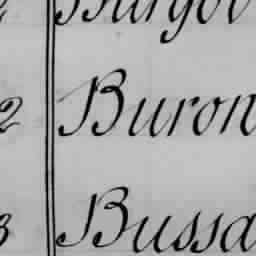 Burgov
2 Buron
3 Bussa